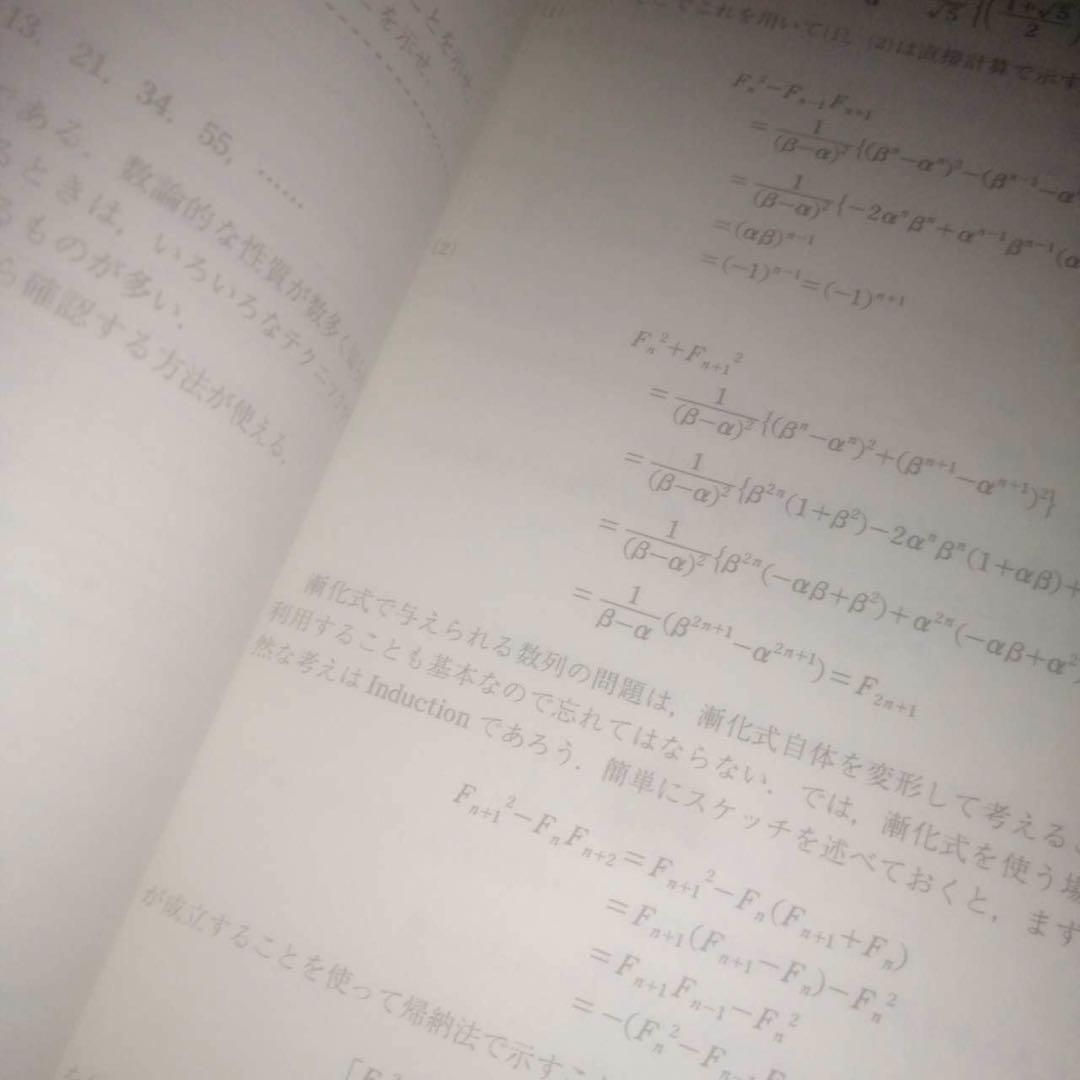 とを示せ.
を示せ.
13, 21, 34, 55, ……
である. 数論的な性質が数多く
るときは, いろいろなテクニック
るものが多い.
ら確認する方法が使える,
√5 {( 1+√5 / 2
でこれを用いて(1), (2)は直接計算で示す
(1)
F_n^2−F_{n−1}F_{n+1}
=1/(β−α)^2{(β^n−α^n)^2−(β^{n−1}−α
=1/(β−α)^2{−2α^nβ^n+α^{n−1}β^{n−1}(α
=(αβ)^{n−1}
=(−1)^{n−1}=(−1)^{n+1}
(2)
F_n^2+F_{n+1}^2
=1/(β−α)^2{(β^n−α^n)^2+(β^{n+1}−α^{n+1})^2}
=1/(β−α)^2{β^{2n}(1+β^2)−2α^nβ^n(1+αβ)+
=1/(β−α)^2{β^{2n}(−αβ+β^2)+α^{2n}(−αβ+α^2)
=1/β−α(β^{2n+1}−α^{2n+1})=F_{2n+1}
漸化式で与えられる数列の問題は, 漸化式自体を変形して考えるこ
利用することも基本なので忘れてはならない. では, 漸化式を使う場
然な考えは Induction であろう. 簡単にスケッチを述べておくと, まず
F_{n+1}^2−F_nF_{n+2}=F_{n+1}^2−F_n(F_{n+1}+F_n)
=F_{n+1}(F_{n+1}−F_n)−F_n^2
=F_{n+1}F_{n−1}−F_n^2
=−(F_n^2−F_{n−1}F
が成立することを使って帰納法で示すこ